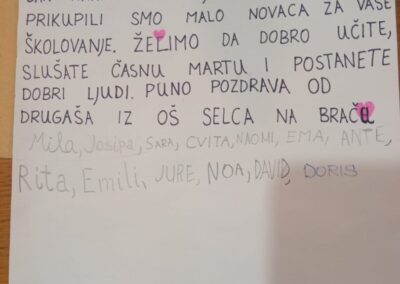 PRIKUPILI SMO MALO NOVACA ZA VAŠE
ŠKOLOVANJE. ŽELIMO DA DOBRO UČITE,
SLUŠATE ČASNU MARTU I POSTANETE
DOBRI LJUDI. PUNO POZDRAVA OD
DRUGAŠA IZ OŠ SELCA NA BRAČU
Mila, Josipa, SARA, CVITA, NAOMI, EMA, ANTE,
Rita, Emili, JURE, NOA, DAVID, DORIS